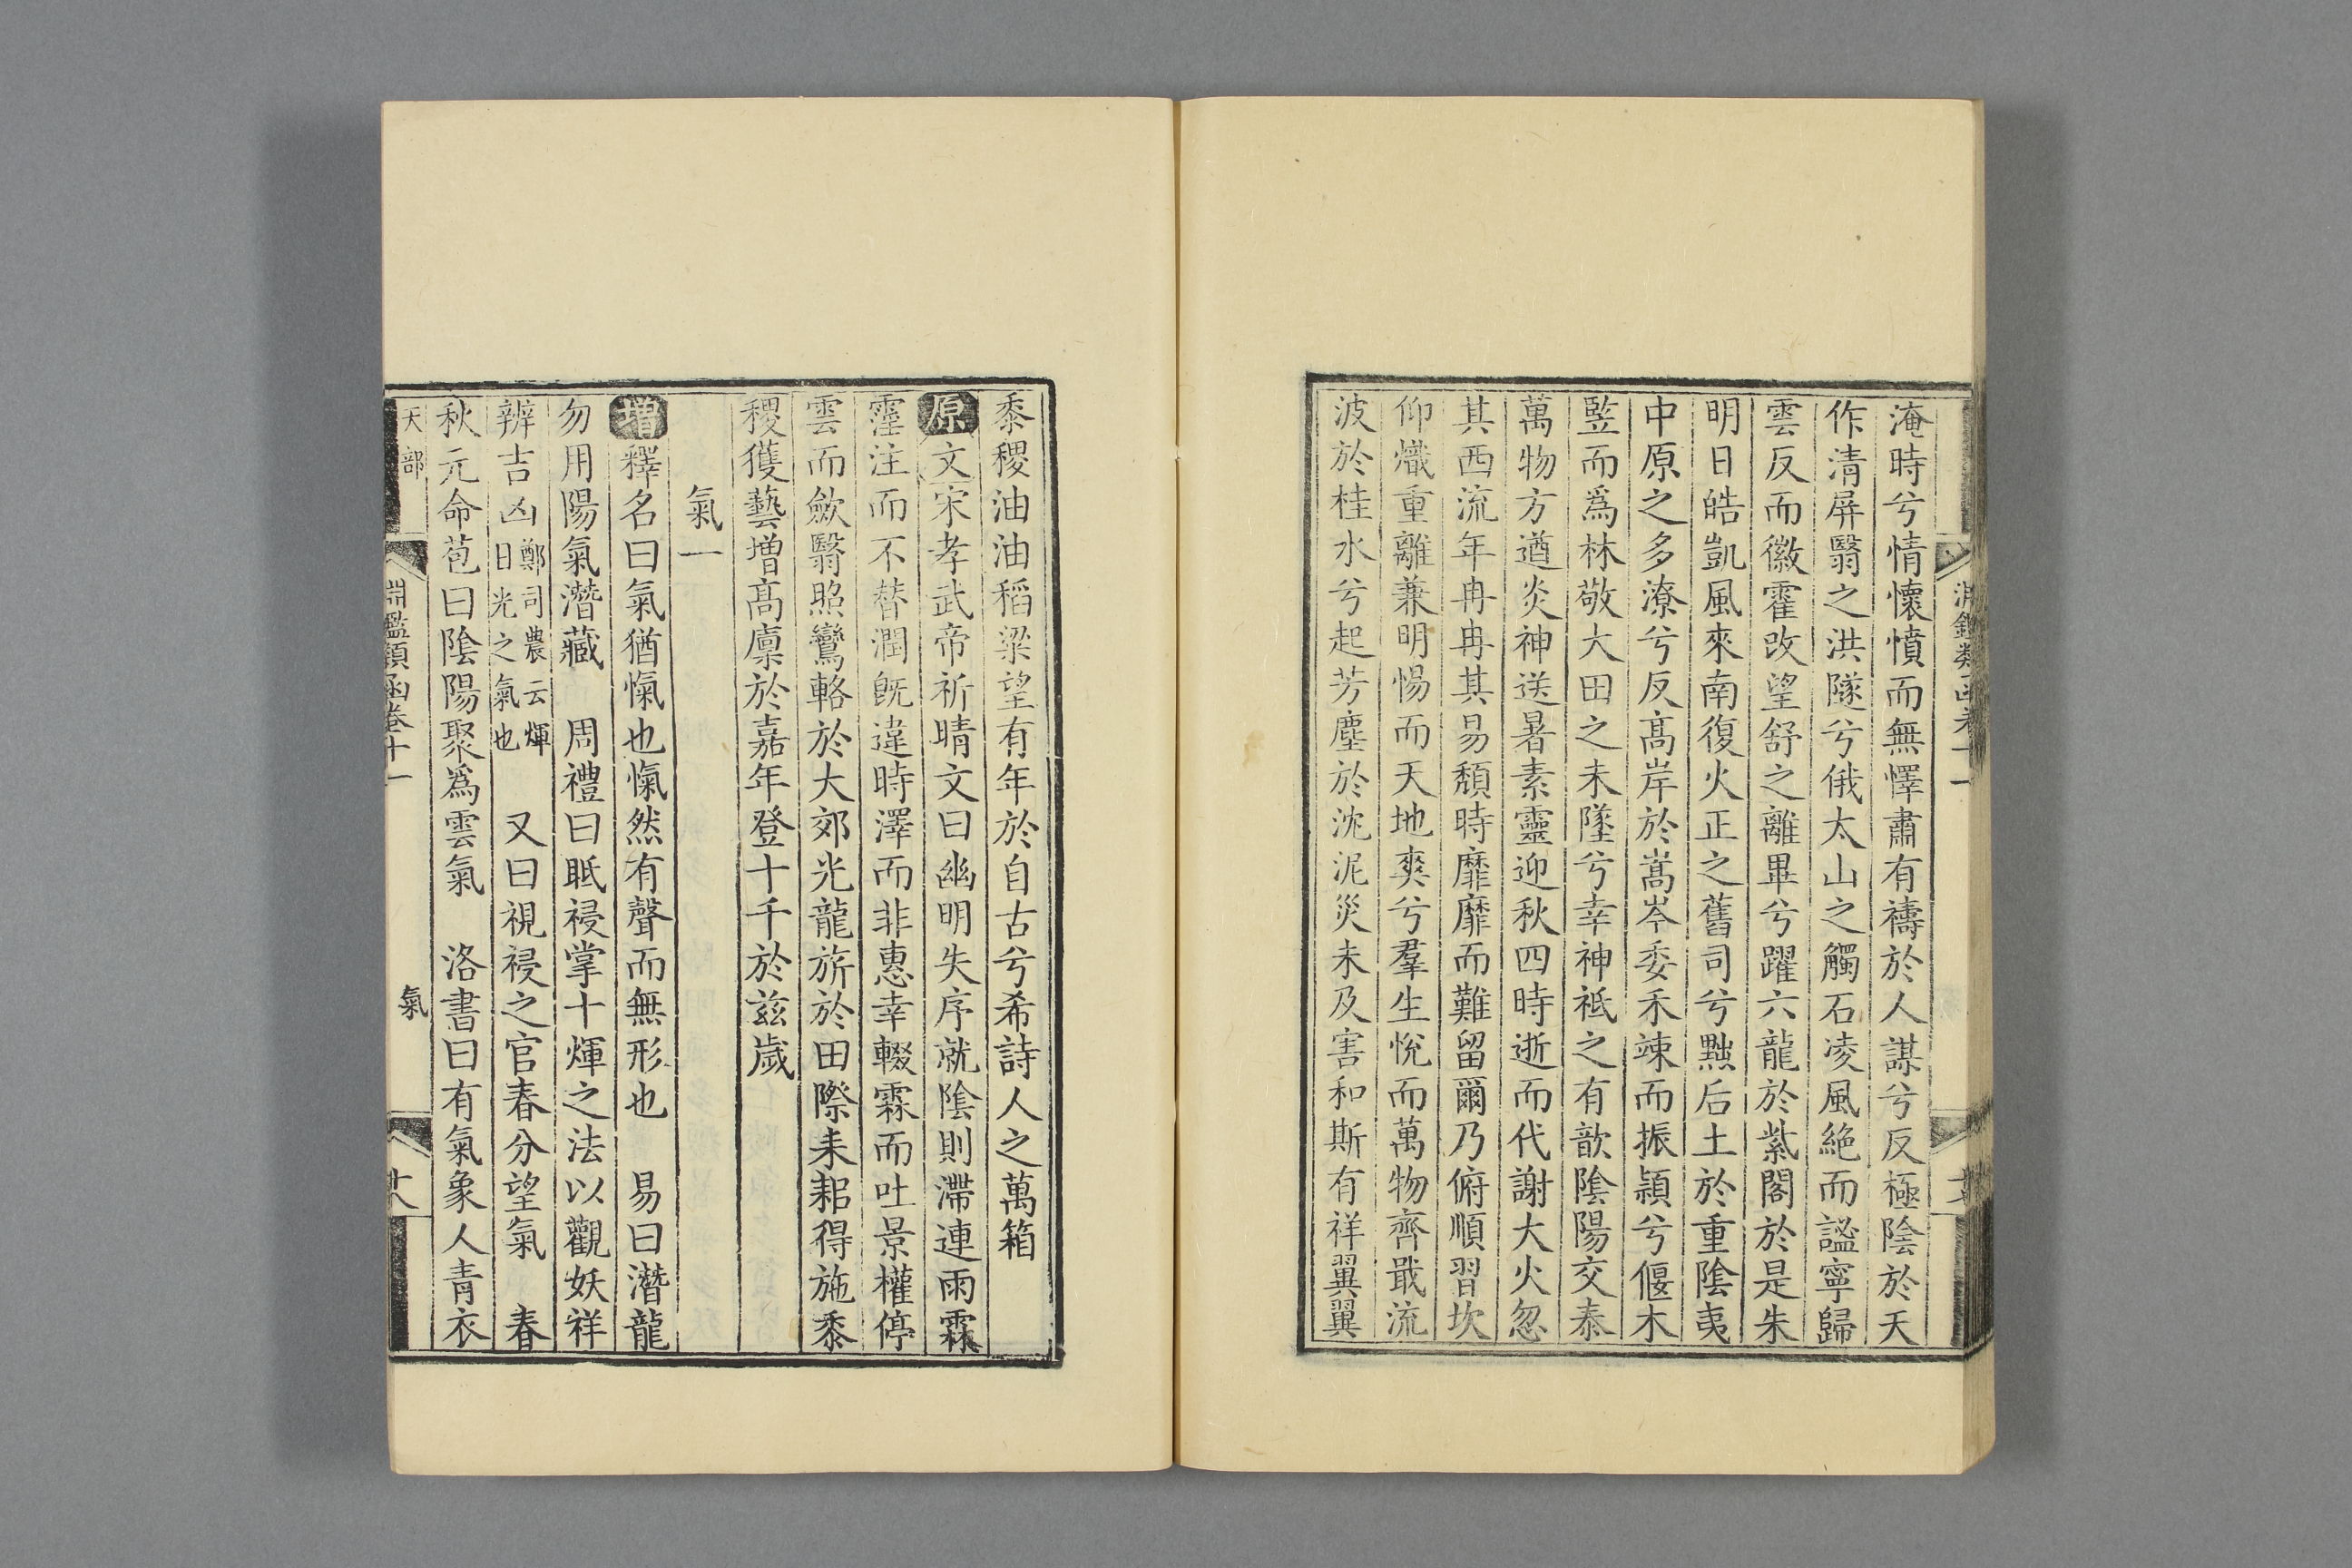 淹時兮情懷憤而無懌肅有禱於人謀兮反極陰於天
作清屏翳之洪隧兮俄太山之觸石凌風絶而謐寧歸
雲反而徽霍改望舒之離畢兮躍六龍於紫閣於是朱
明日皓凱風來南復火正之舊司兮黜后土於重陰夷
中原之多潦兮反髙岸於嵩岑委禾竦而振頴兮偃木
竪而爲林敬大田之未墜兮幸神祗之有歆陰陽交泰
萬物方遒炎神送暑素靈迎秋四時逝而代謝大火忽
其西流年冉冉其易頽時靡靡而難留爾乃俯順習坎
仰熾重離兼明惕而天地爽兮羣生悅而萬物齊戢流
波於桂水兮起芳塵於沈泥災未及害和斯有祥翼翼
黍稷油油稻粱望有年於自古兮希詩人之萬箱
原文宋孝武帝祈晴文曰幽明失序就陰則滯連雨霖
霪注而不替潤旣違時澤而非惠幸輟霖而吐景權停
雲而歛翳照鸞輅於大郊光龍旂於田際耒耜得施黍
稷獲藝增髙廩於嘉年登十千於兹歲
氣一
增釋名曰氣猶愾也愾然有聲而無形也 易曰潛龍
勿用陽氣潛藏 周禮曰眡祲掌十煇之法以觀妖祥
辨吉凶鄭司農云煇日光之氣也 又曰視祲之官春分望氣 春
秋元命苞曰陰陽聚爲雲氣 洛書曰有氣象人青衣
天部
淵鑑類函卷十一
氣